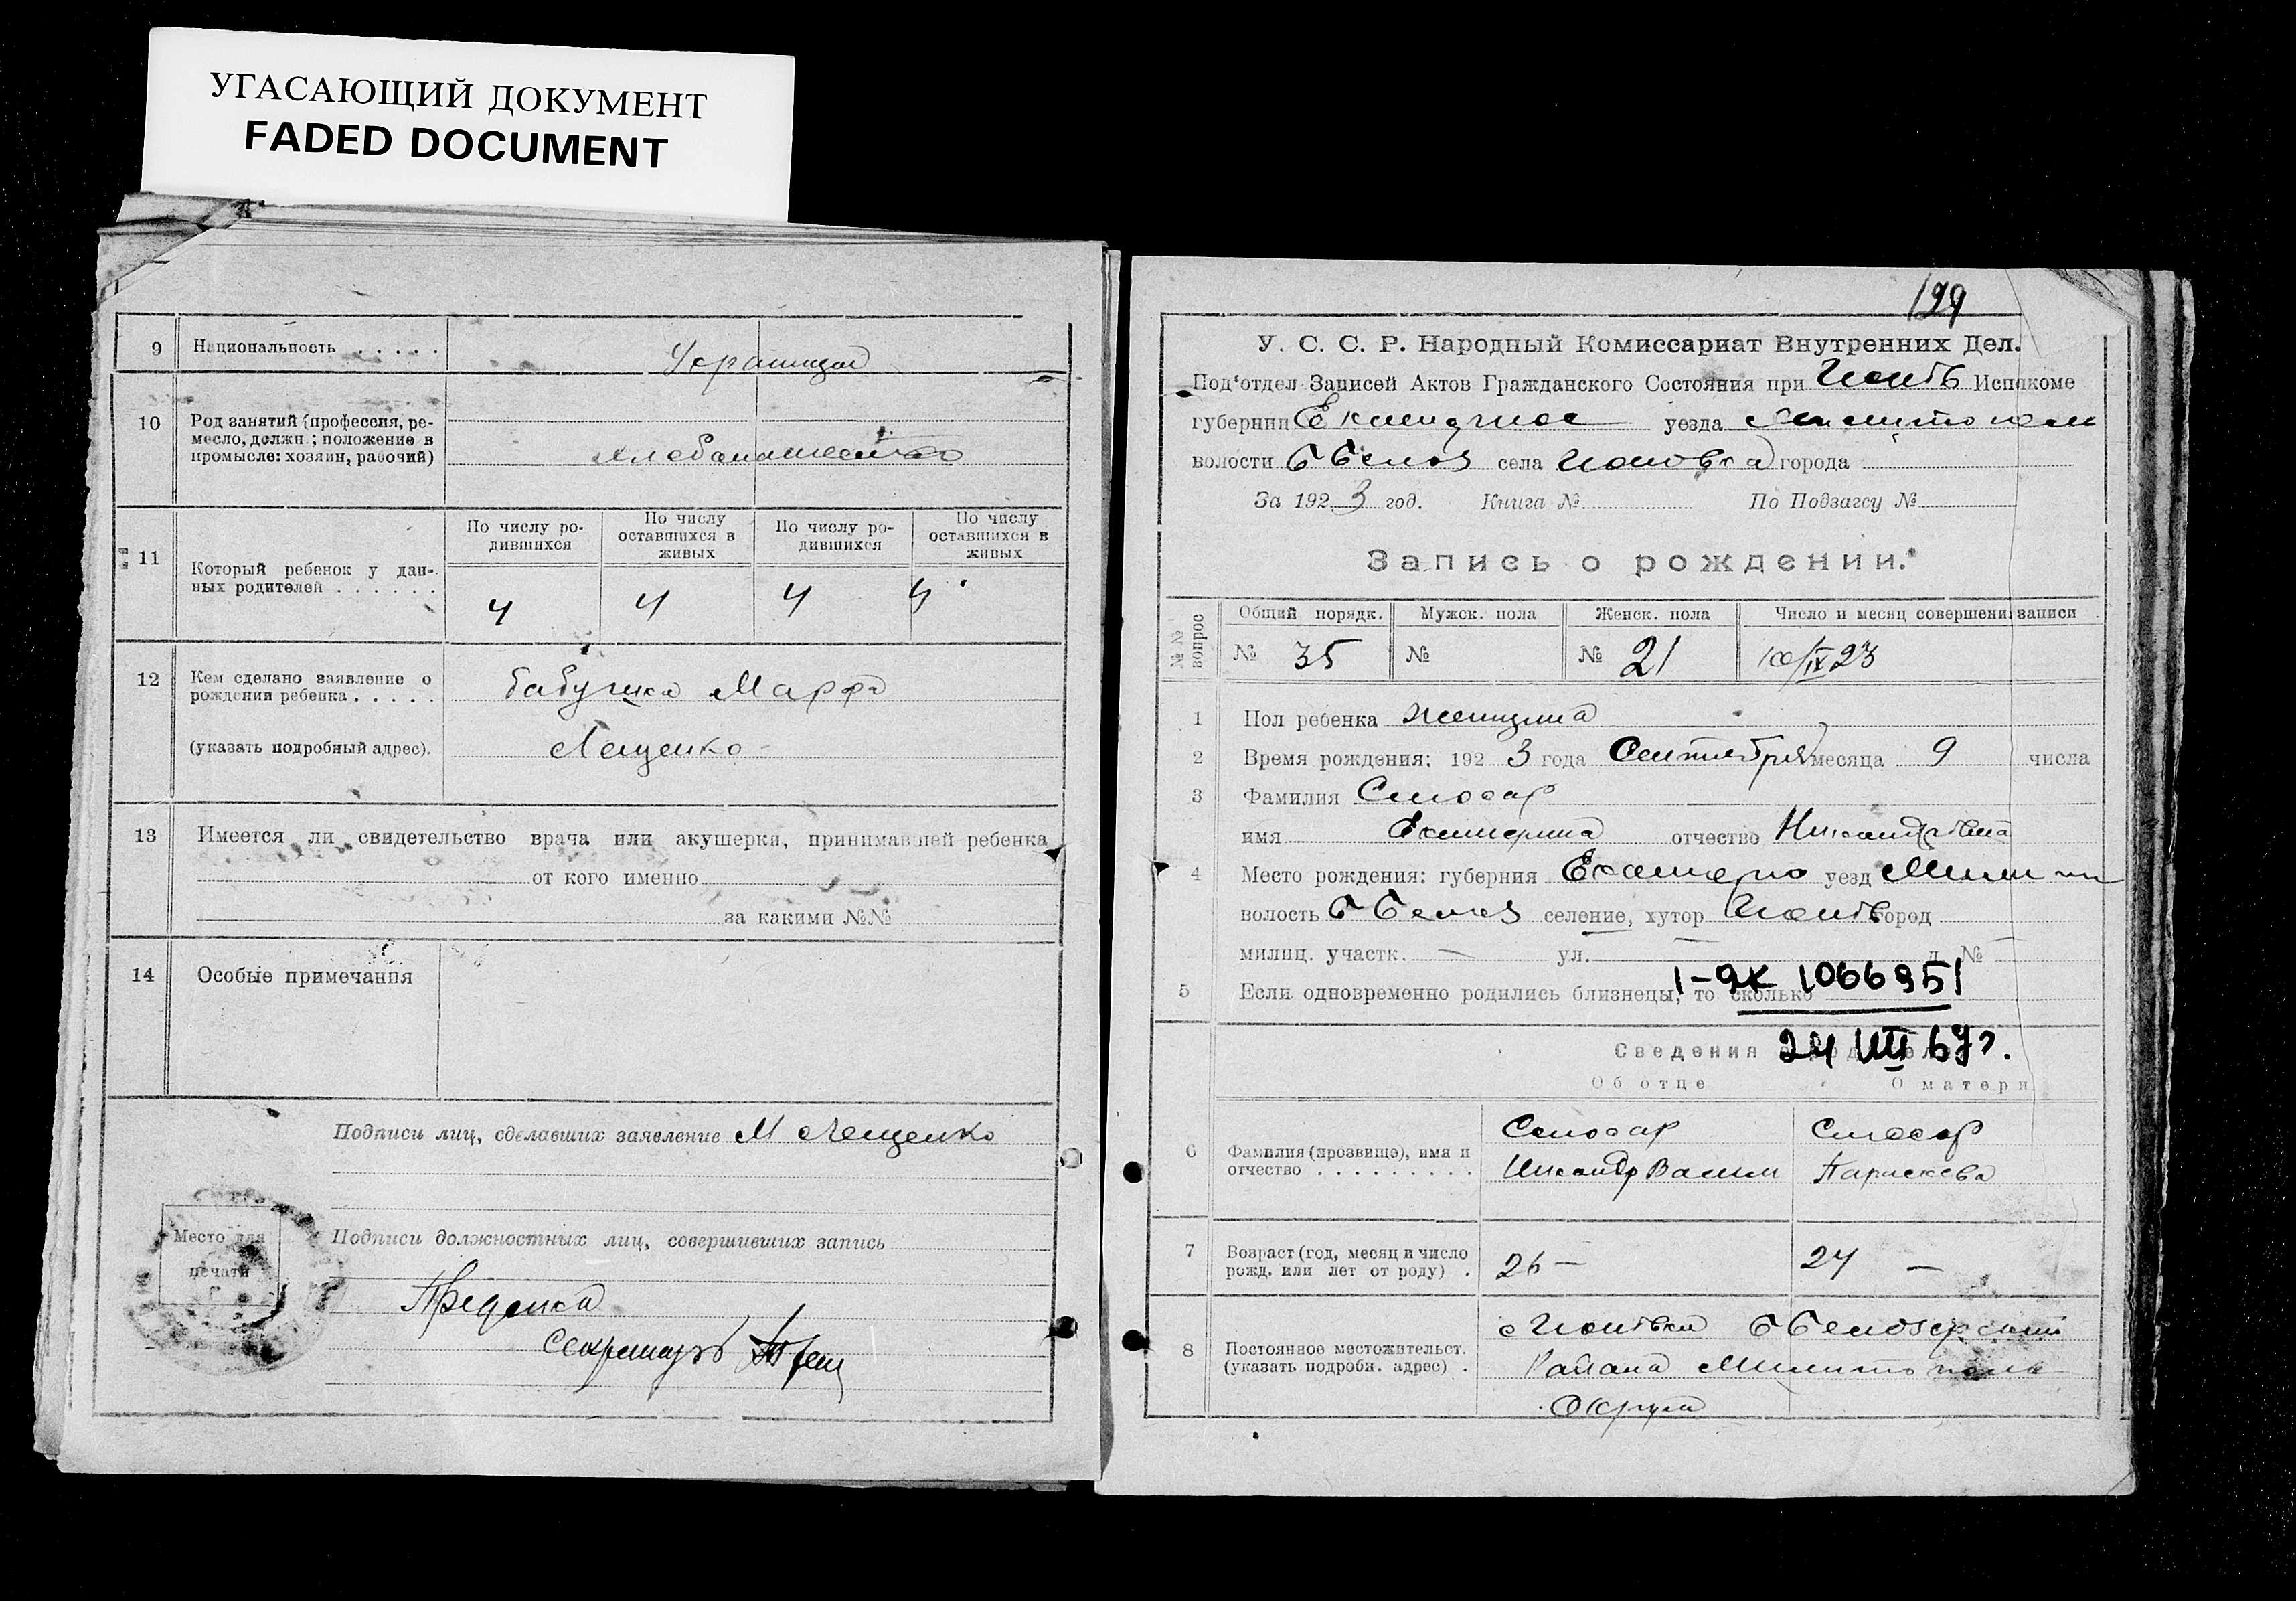 УГАСАЮЩИЙ ДОКУМЕНТ
FADED DOCUMENT
9 Национальность . . . . .
10 Род занятий (профессия, ре-
месло, должн.; положение в
промысле: хозяин, рабочий)
11 Который ребенок у дан-
ных родителей . . . . . .
По числу ро-
дившихся
По числу
оставшихся в
живых
По числу ро-
дившихся
По числу
оставшихся в
живых
4 4 4 4
12 Кем сделано заявление о
рождении ребенка . . . . .
(указать подробный адрес).
бабушка Марфа
Лещенко
13 Имеется ли свидетельство врача или акушерки, принимавшей ребенка
от кого именно
за какими №№
14 Особые примечания
Подписи лиц, сделавших заявление М Лещенко
Место для
печати
Подписи должностных лиц, совершивших запись
секретарь
199
У. С. С. Р. Народный Комиссариат Внутренних Дел.
Под'отдел Записей Актов Гражданского Состояния при Испокоме
губернии уезда
волости села города
За 1923 год. Книга № По Подзагсу №
Запись о рождении.
№№ вопрос
Общий порядк. Мужск. пола Женск. пола Число и месяц совершени записи
№ 35 № № 21 10/IX 23
1 Пол ребенка женщина
2 Время рождения: 1923 года Сентября месяца 9 числа
3 Фамилия Слюсар
имя Екатерина отчество Никандровна
4 Место рождения: губерния Екатерино уезд
волость селение, хутор город
милиц. участк. — ул. д. №
5 Если одновременно родились близнецы, то сколько
1-ЯК 1066951
24 VIII 67г.
Сведения
Об отце О матери
6 Фамилия (прозвище), имя и
отчество . . . . . . . . .
Слюсар
Никандр
Слюсар
Параскева
7 Возраст (год, месяц и число
рожд. или лет от роду) .
26 —
24 —
8 Постоянное местожительст.
(указать подробн. адрес) .
Района
Округа